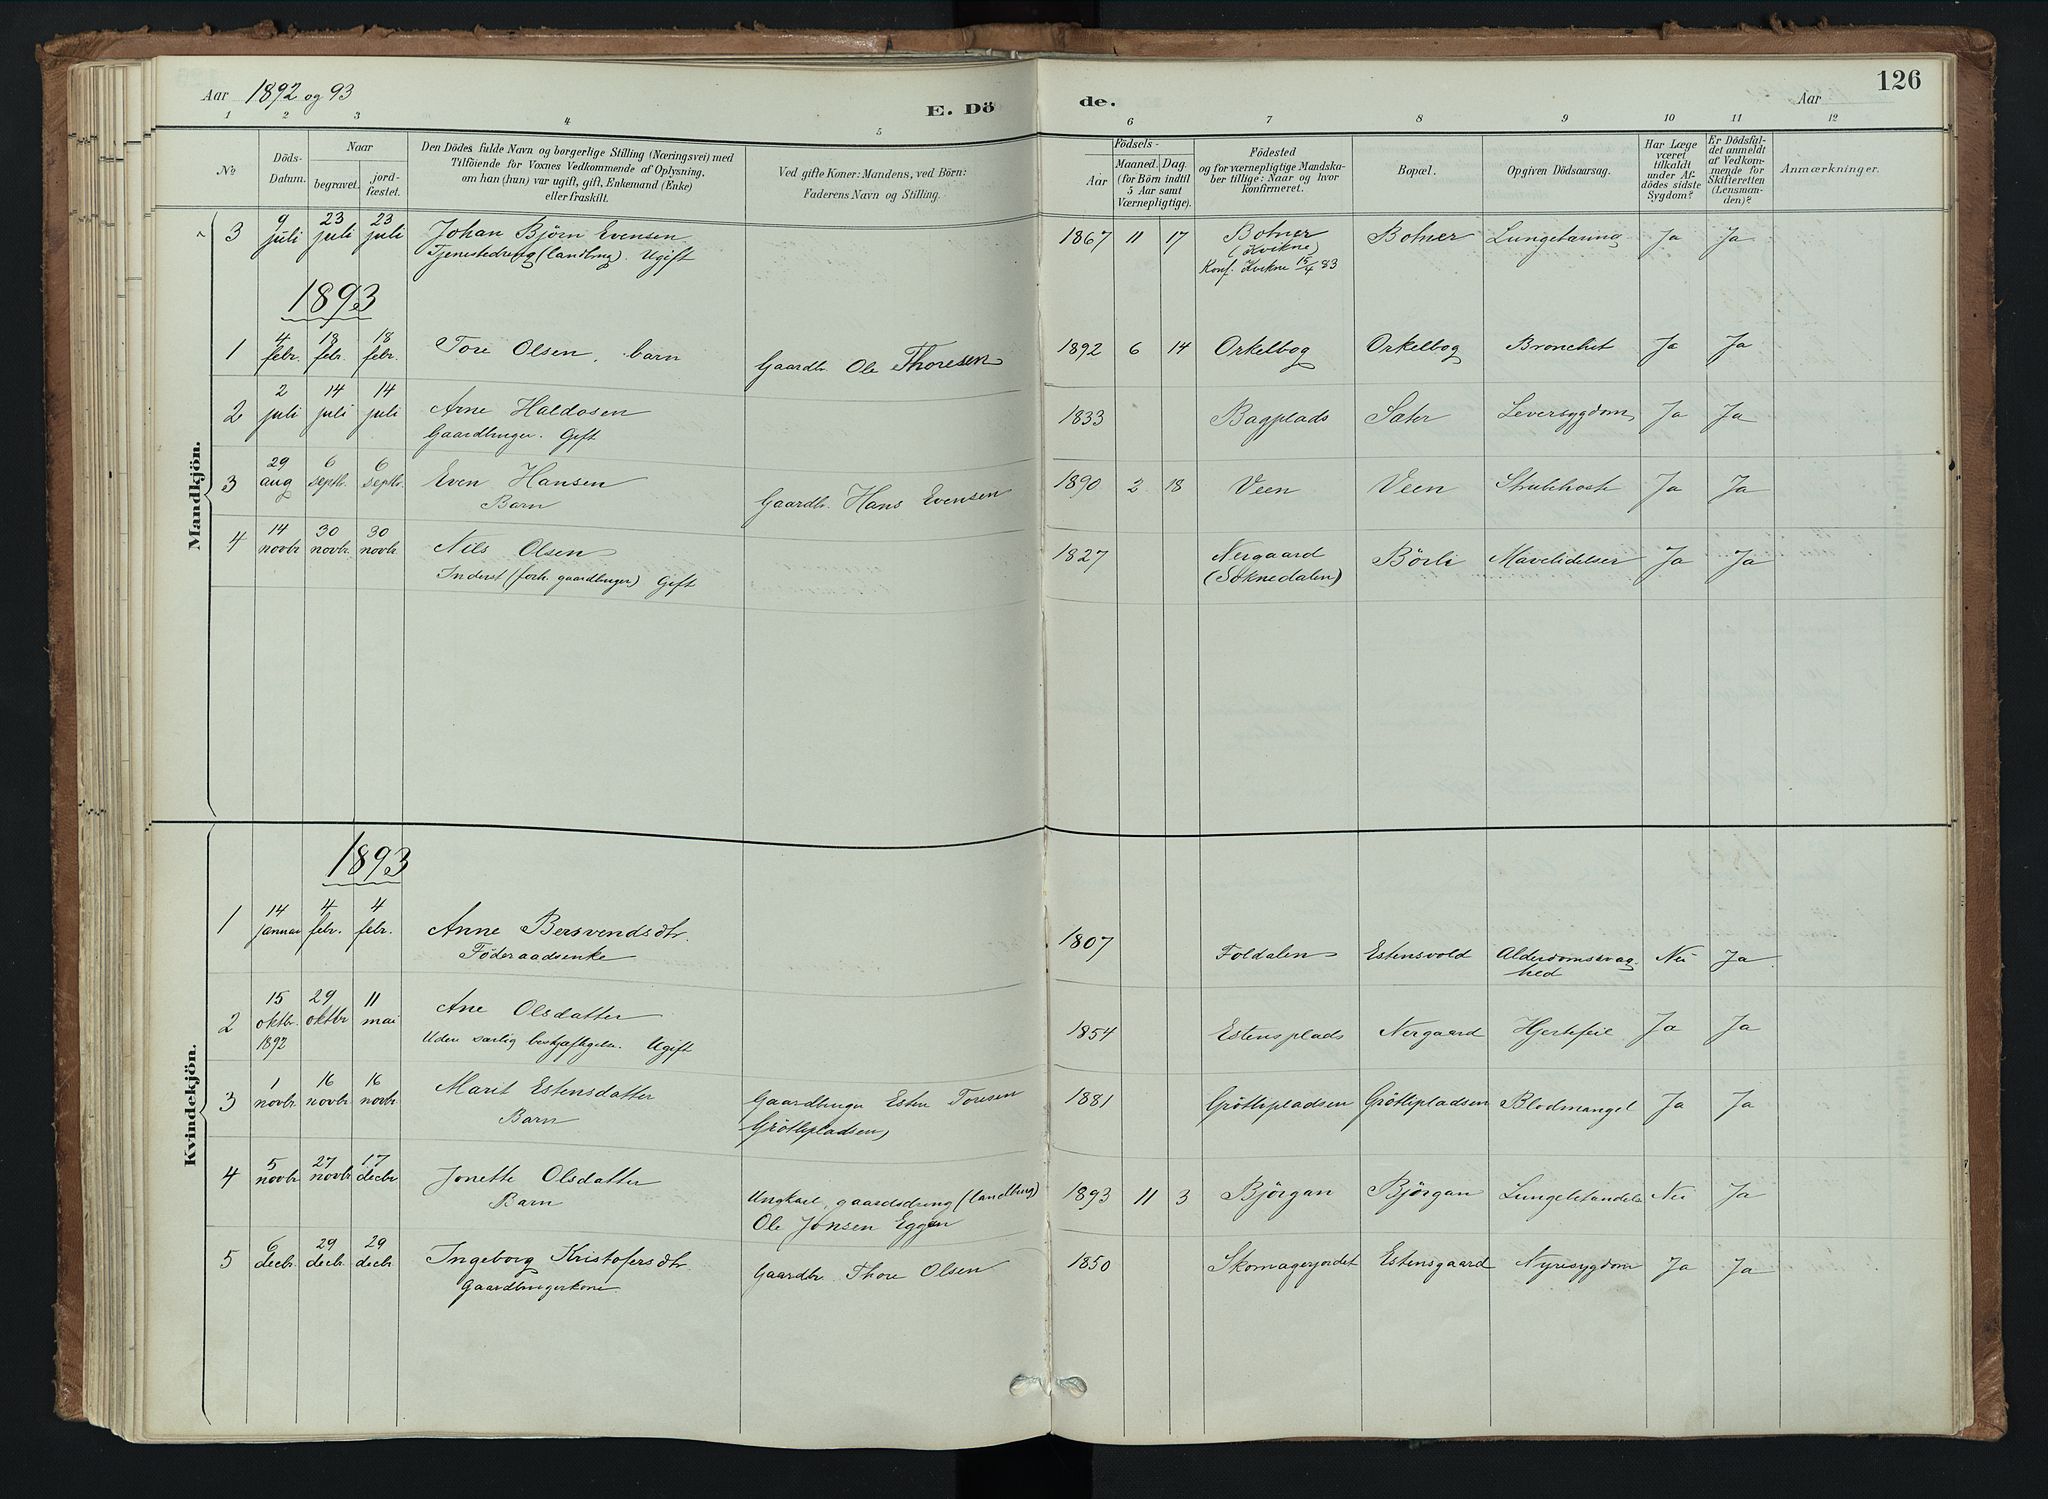 Aar 1892 og 93
E. Dö
de.
Aar
126
1 2 3 4 5 6 7 8 9 10 11 12
No
Döds-Datum.
Naar
begravet.
jord-fæstet.
Den Dödes fulde Navn og borgerlige Stilling (Næringsvei) med
Tilföiende for Voxnes Vedkommende af Oplysning,
om han (hun) var ugift, gift, Enkemand (Enke)
eller fraskilt.
Ved gifte Koner: Mandens, ved Börn:
Faderens Navn og Stilling.
Födsels-
Aar
Maaned. Dag.
(for Börn indtil
5 Aar samt
Værnepligtige).
Födested
og for værnepligtige Mandska-
ber tillige: Naar og hvor
konfirmeret.
Bopæl.
Opgiven Dödsaarsag.
Har Læge
været
tilkaldt
under Af-
dödes sidste
Sygdom?
Er Dödsfal-
det anmeldt
af Vedkom-
mende for
Skifteretten
(Lensman-
den)?
Anmærkninger.
Mandkjön.
3 9 juli 23 juli 23 juli Johan Björn Evensen 1867 11 17 Botner Botner Lungetæring Ja Ja
Tjenestedreng (landbrug). Ugift (Kvikne)
Konf. Kvikne 15/4 83
1893
1 4 febr. 18 febr. 18 febr. Tore Olsen, barn Gaardbr. Ole Thoresen 1892 6 14 Orkelbog Orkelbog Bronchit Ja Ja
2 2 juli 14 juli 14 juli Arne Haldosen 1833 Bagplads Sæter Leversygdom Ja Ja
Gaardbruger. Gift
3 29 aug 6 septbr. 6 septbr. Even Hansen Gaardbr. Hans Evensen 1890 2 18 Veen Veen Strubehoste Ja Ja
Barn
4 14 novbr 30 novbr. 30 novbr. Nils Olsen 1827 Nergaard Börli Mavelidelser Ja Ja
Inderst (forh. gaardbruger) Gift (Soknedalen)
Kvindekjön.
1893
1 14 januar 4 febr. 4 febr. Anne Bersvendsdtr. 1807 Foldalen Estensvold Alderdomssvag- Nei Ja
Föderaadsenke hed
2 15 oktbr. 1892 29 oktbr 11 mai Ane Olsdatter 1854 Estensplads Nergaard Hjertefeil Ja Ja
Uden særlig beskjæftigelse. Ugift
3 1 novbr. 16 novbr 16 novbr. Marit Estensdatter Gaardbruger Esten Toresen 1881 Grötlipladsen Grötlipladsen Blodmangel Ja Ja
Barn Grötlipladsen
4 5 novbr 27 novbr 17 decbr Jonette Olsdatter Ungkarl, gaardsdreng (landbrug) 1893 11 3 Björgan Björgan Nei Ja
Barn Ole Jonsen Eggen
5 6 decbr. 29 decbr. 29 decbr. Ingeborg Kristofersdtr. Gaardbr. Thore Olsen 1850 Skomagerjordet Estensgaard Nyresygdom Ja Ja
Gaardbrugerkone